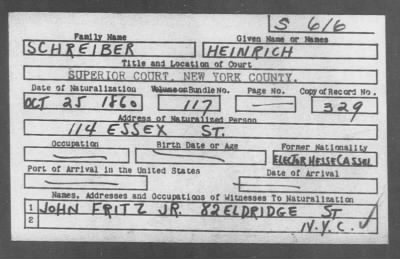 S 616
Family Name Given Name or Names
SCHREIBER HEINRICH
Title and Location of Court
SUPERIOR COURT, NEW YORK COUNTY.
Date of Naturalization Volume or Bundle No. Page No. Copy of Record No.
OCT 25 1860 117 — 329
Address of Naturalized Person
114 ESSEX ST.
Occupation Birth Date or Age Former Nationality
— — ELECTOR HESSE CASSEL
Port of Arrival in the United States Date of Arrival
— —
Names, Addresses and Occupations of Witnesses To Naturalization
1 JOHN FRITZ JR. 82 ELDRIDGE ST
2 N.Y.C. ✓